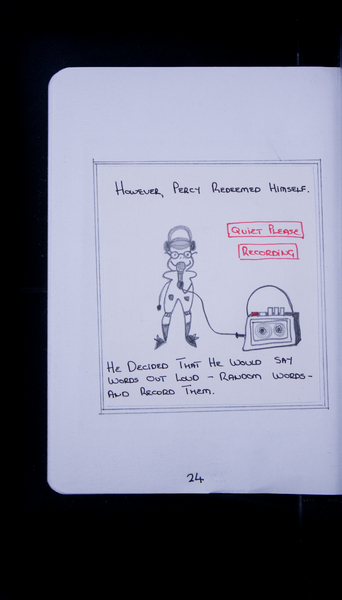 However, Percy Redeemed Himself.
Quiet Please
Recording
He Decided That He Would Say
Words Out Loud - Random Words -
And Record Them.
24